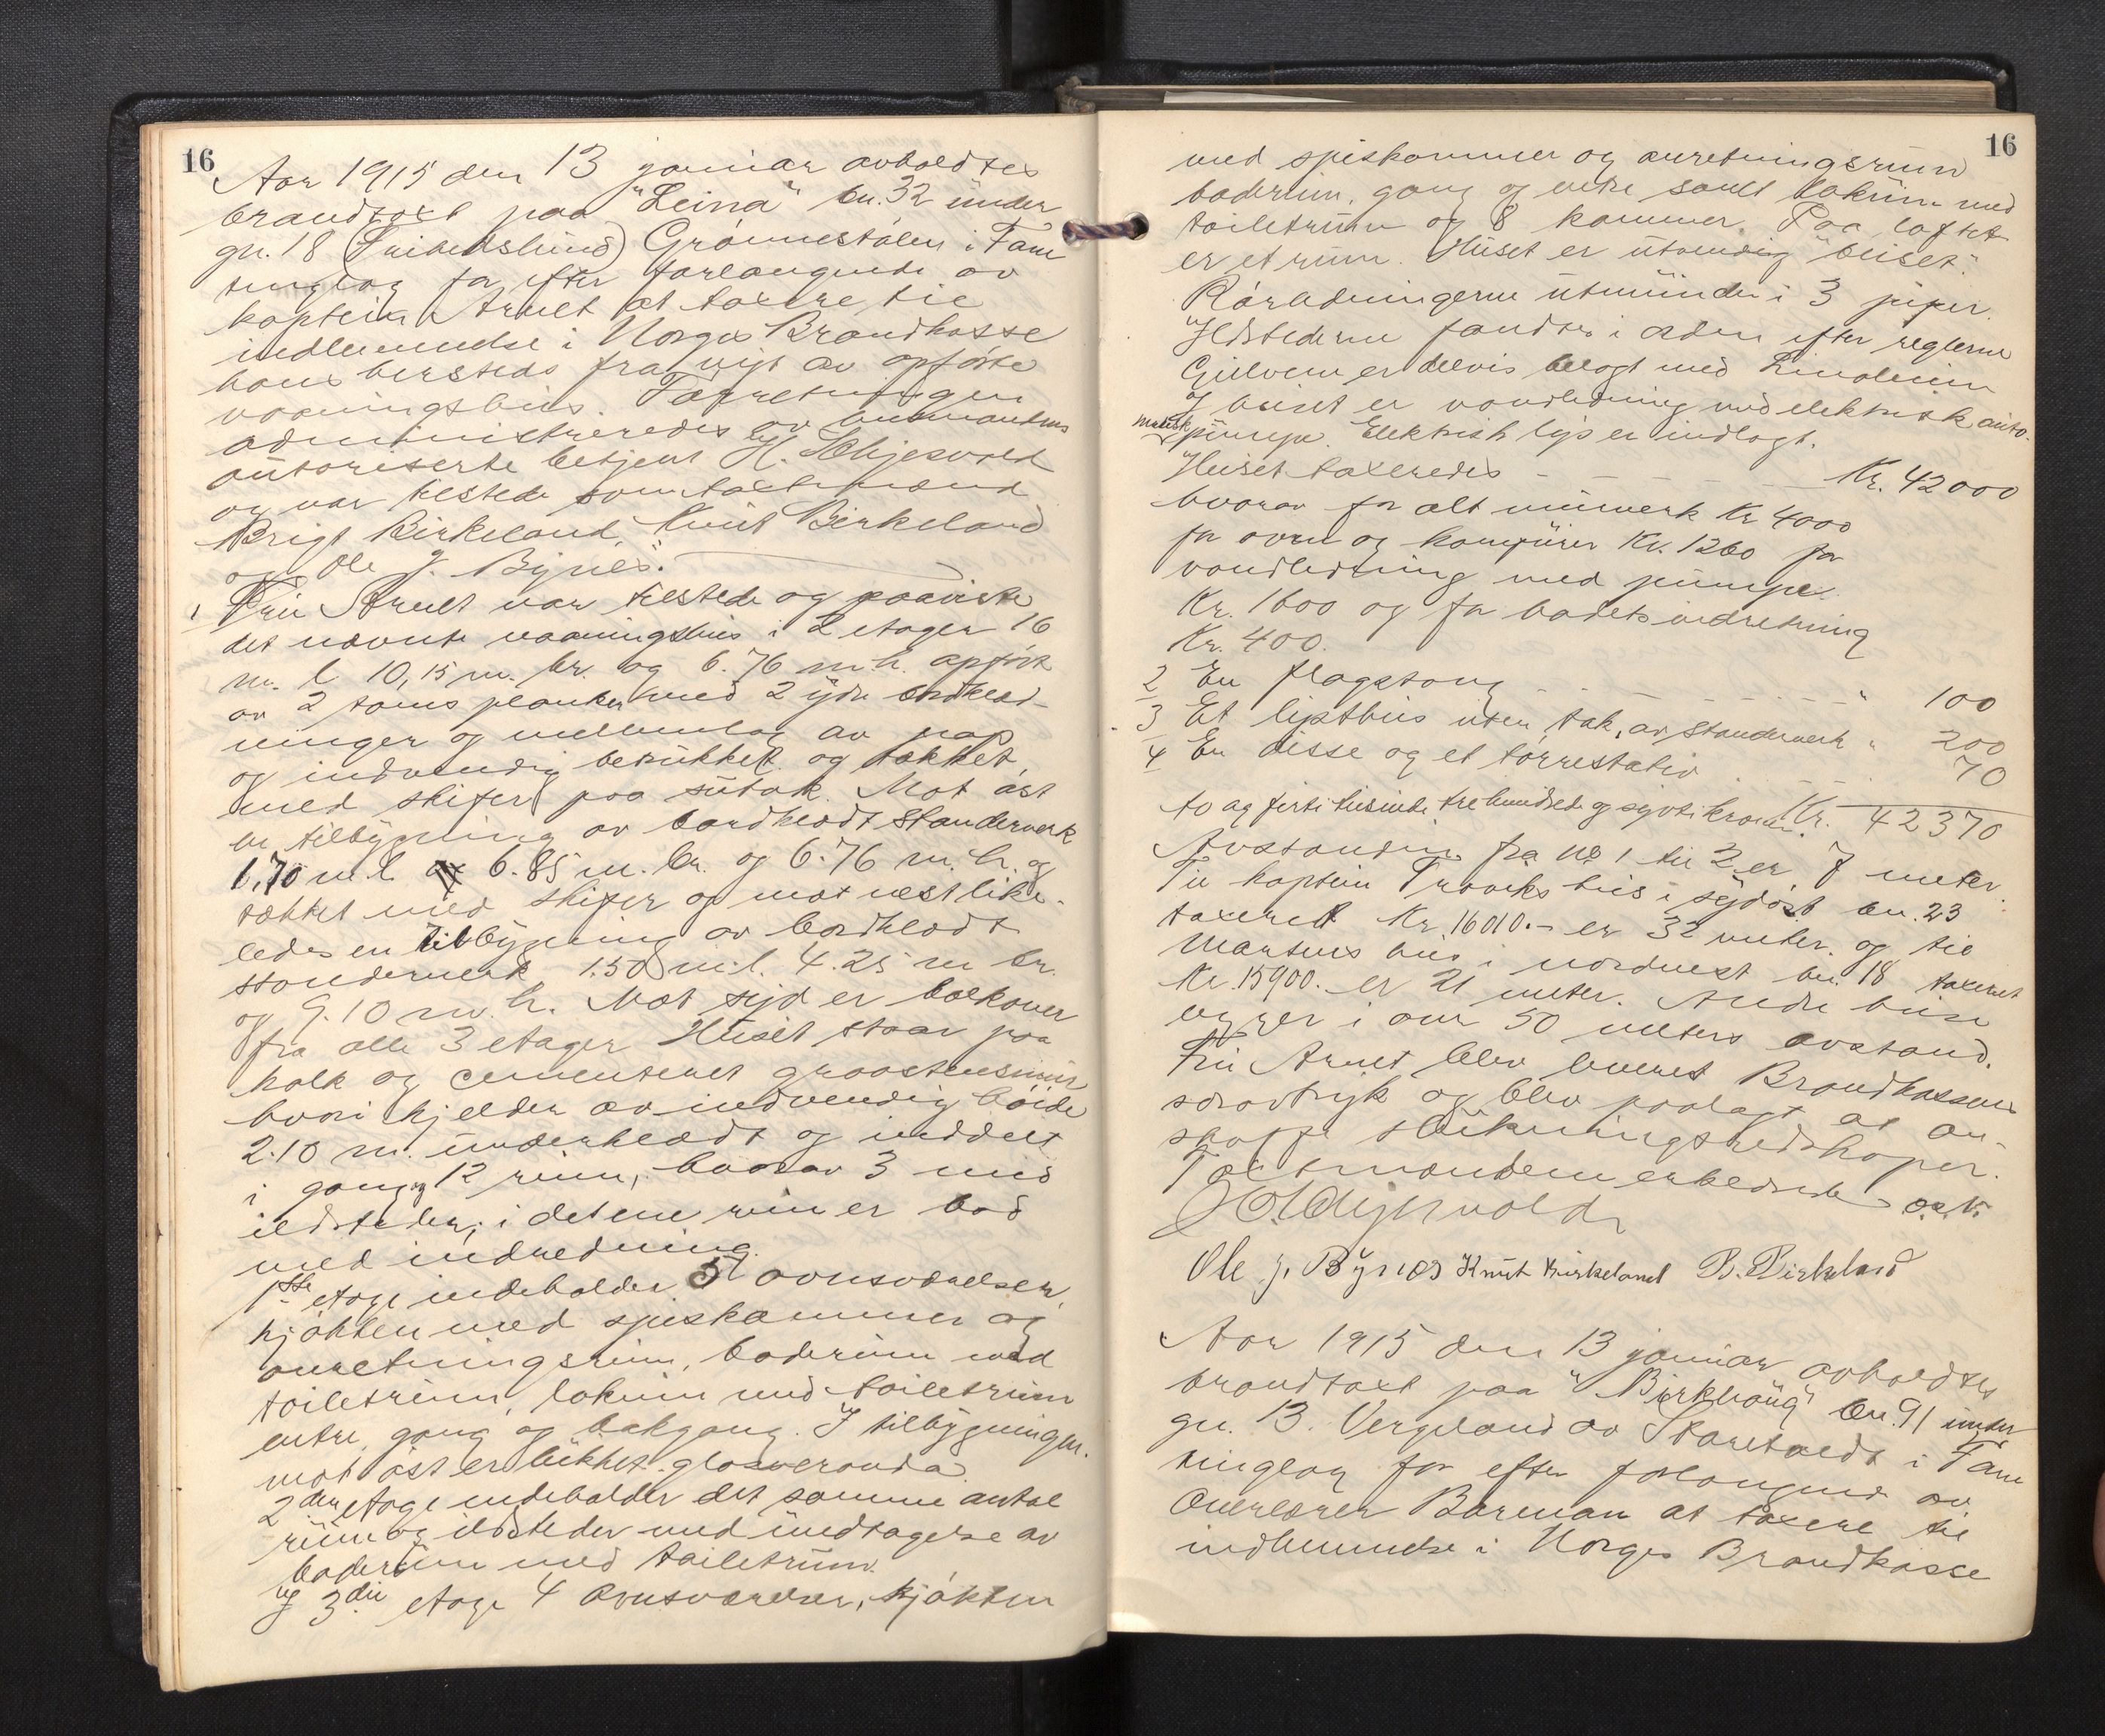 16
Aar 1915 den 13 januar avholdtes
brandtaxt paa "Leina" bn. 32 under
gn. 18 (Fribelslund) Grönnestölen i Fane
tinglag for efter forlangende av
kaptein Arnet at taxere til
indlemmelse i Norges Brandkasse
hans hersteds fra nyt av opförte
vaaningshus. Forretningen
administreredes av lensmandens
autoriserte betjent H. Schjesvold
og var tilstede som taxtmænd
Brigt Birkeland, Knut Birkeland
og Ole J. Byrnes.
1 Fru Arnet var tilstede og paaviste
det nævnte vaaningshus i 2 etager 16
m. l 10,15 m. br. og 6.76 m h. opfört
av 2 toms planker med 2 ydre bordklæd-
ninger og mellemlag av pap
og indvendig betrukket og tækket
med skifer paa sutak. Mot öst
en tilbygning av bordklædt standerverk
1,70 m. l 6.85 m. br. og 6.76 m. h. og
tækket med skifer og mot vest like-
ledes en tilbygning av bordklædt
standerverk 1.50 m. l. 4.25 m br.
og 9.10 m. h. Mot syd er balkoner
fra alle 3 etager Huset staar paa
kalk og cementeret graastensmur
hvori kjelder av indvendig höide
2.10 m. underklædt og inddelt
i gang og 12 rum, hvorav 3 med
ildsteder; i det ene rum er bad
med indredning.
1ste etage indeholder 5 ovnsværelser,
kjökken med spiskammer og
anretningsrum, baderum med
toiletrum, lokum med toiletrum
entre, gang og bakgang. I tilbygningen
mot öst er lukket glasveranda.
2den etage indeholder det samme antal
rum og ildsteder med undtagelse av
baderum med toiletrum.
og 3die etage 4 ovnsværelser, kjökken
16
med spiskammer og anretningsrum
baderum, gang og entre samt lokum med
toiletrum og 8 kammer. Paa loftet
er et rum. Huset er utvendig "beiset".
Rörledningerne utmunder i 3 piper.
Ildstederne fandtes i orden efter reglerne
Gulvene er delvis belagt med Linoleum
og huset er vandledning med elektrisk auto-
matisk pumpe. Elektrisk lys er indlagt.
Huset taxeredes - - - - Kr. 42000
hvorav for alt murverk Kr 4000
for ovne og komfurer Kr. 1260 for
vandledning med pumpe
Kr. 1600 og for badets indretning
Kr. 400.
2 En flagstang - - - - " 100
3 Et lysthus uten tak, av standerverk " 200
4 En disse og et törrestativ - - - 70
to og firti tusinde trehundrede og sytti kroner. Kr. 42370
Avstanden fra No 1 til 2 er 7 meter.
Til kaptein Traviks hus i sydöst bn. 23
taxeret Kr. 16010.- er 32 meter og til
Martens hus i nordvest bn. 18 taxeret
Kr. 15900. er 21 meter. Andre huse
ligger i over 50 meters avstand.
Fru Arnet blev leveret Brandkassens
særtryk og blev paalagt at an-
skaffe slukningsredskaper.
Taxtmændene erklærede o.s.v.
H. Schjesvold
Ole J. Byrnes Knut Birkeland B. Birkeland
Aar 1915 den 13 januar avholdtes
brandtaxt paa "Birkhaug" bn. 91 under
gn. 13. Vergeland av Storetvedt i Fane
tinglag for efter forlangende av
Overlærer Barman at taxere til
indlemmelse i Norges Brandkasse